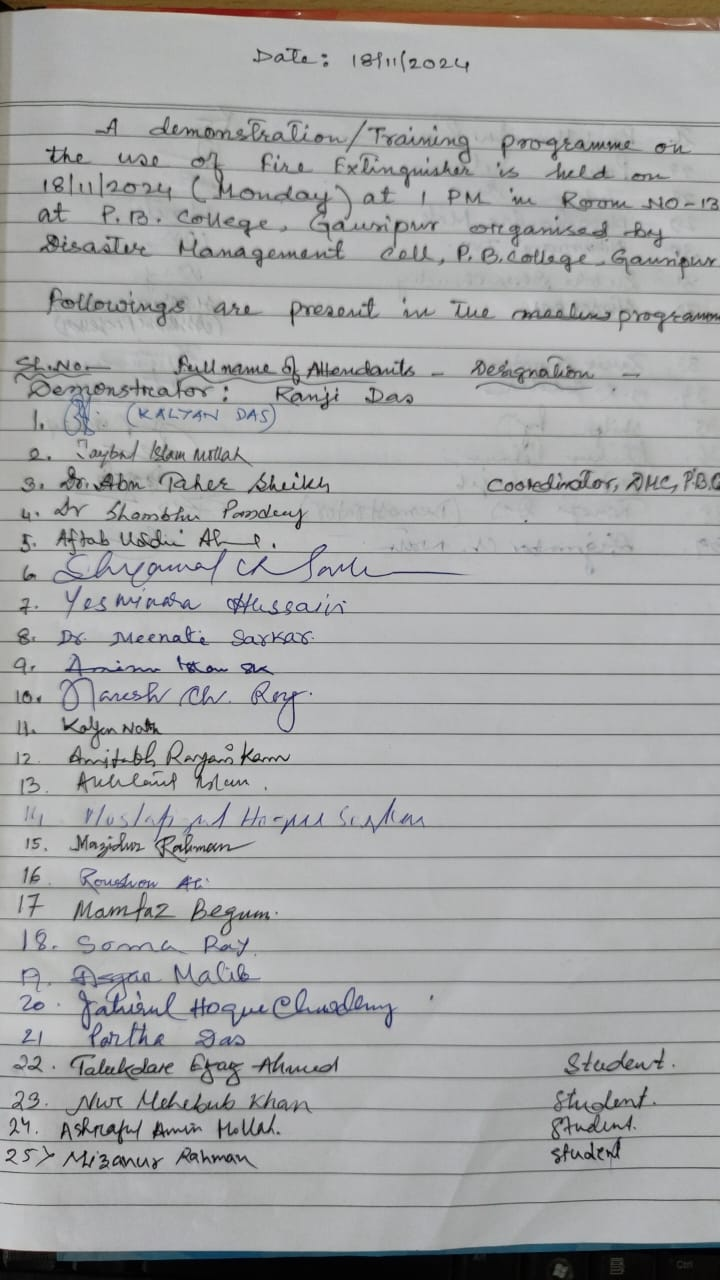 Date: 18/11/2024
A demonstration/Training programme on
the use of Fire Extinguisher is held on
18/11/2024 (Monday) at 1 PM in Room NO-13
at P.B. College, Gauripur organised by
Disaster Management Cell, P.B. College, Gauripur
Followings are present in the programm
Sl. No. Full name of Attendants - Designation -
Demonstrator: Ranji Das
1. (KALYAN DAS)
2. Islam Mollah
3. Dr. Abu Taher Sheikh Coordinator, DMC, P.B.C
4. Dr Shambhu Pandey
5. Aftab Uddin
6. Shyamal ch
7. Yesminara Hussain
8. Dr. Meenati Sarkar.
9.
10. Naresh Ch. Roy.
11. Kalyan Nath
12. Amitabh
13. Islam.
14 Hoque
15. Mazidur Rahman
16 Roushon Ali
17 Mamtaz Begum.
18. Soma Ray.
19. Malik
20. Jahirul Hoque
21 Partha Das
22. Talukdare Ejaz Ahmed Student.
23. Nur Mehebub Khan Student.
24. Ashraful Amin Mollah. Student.
25> Mizanur Rahman student
Ctrl